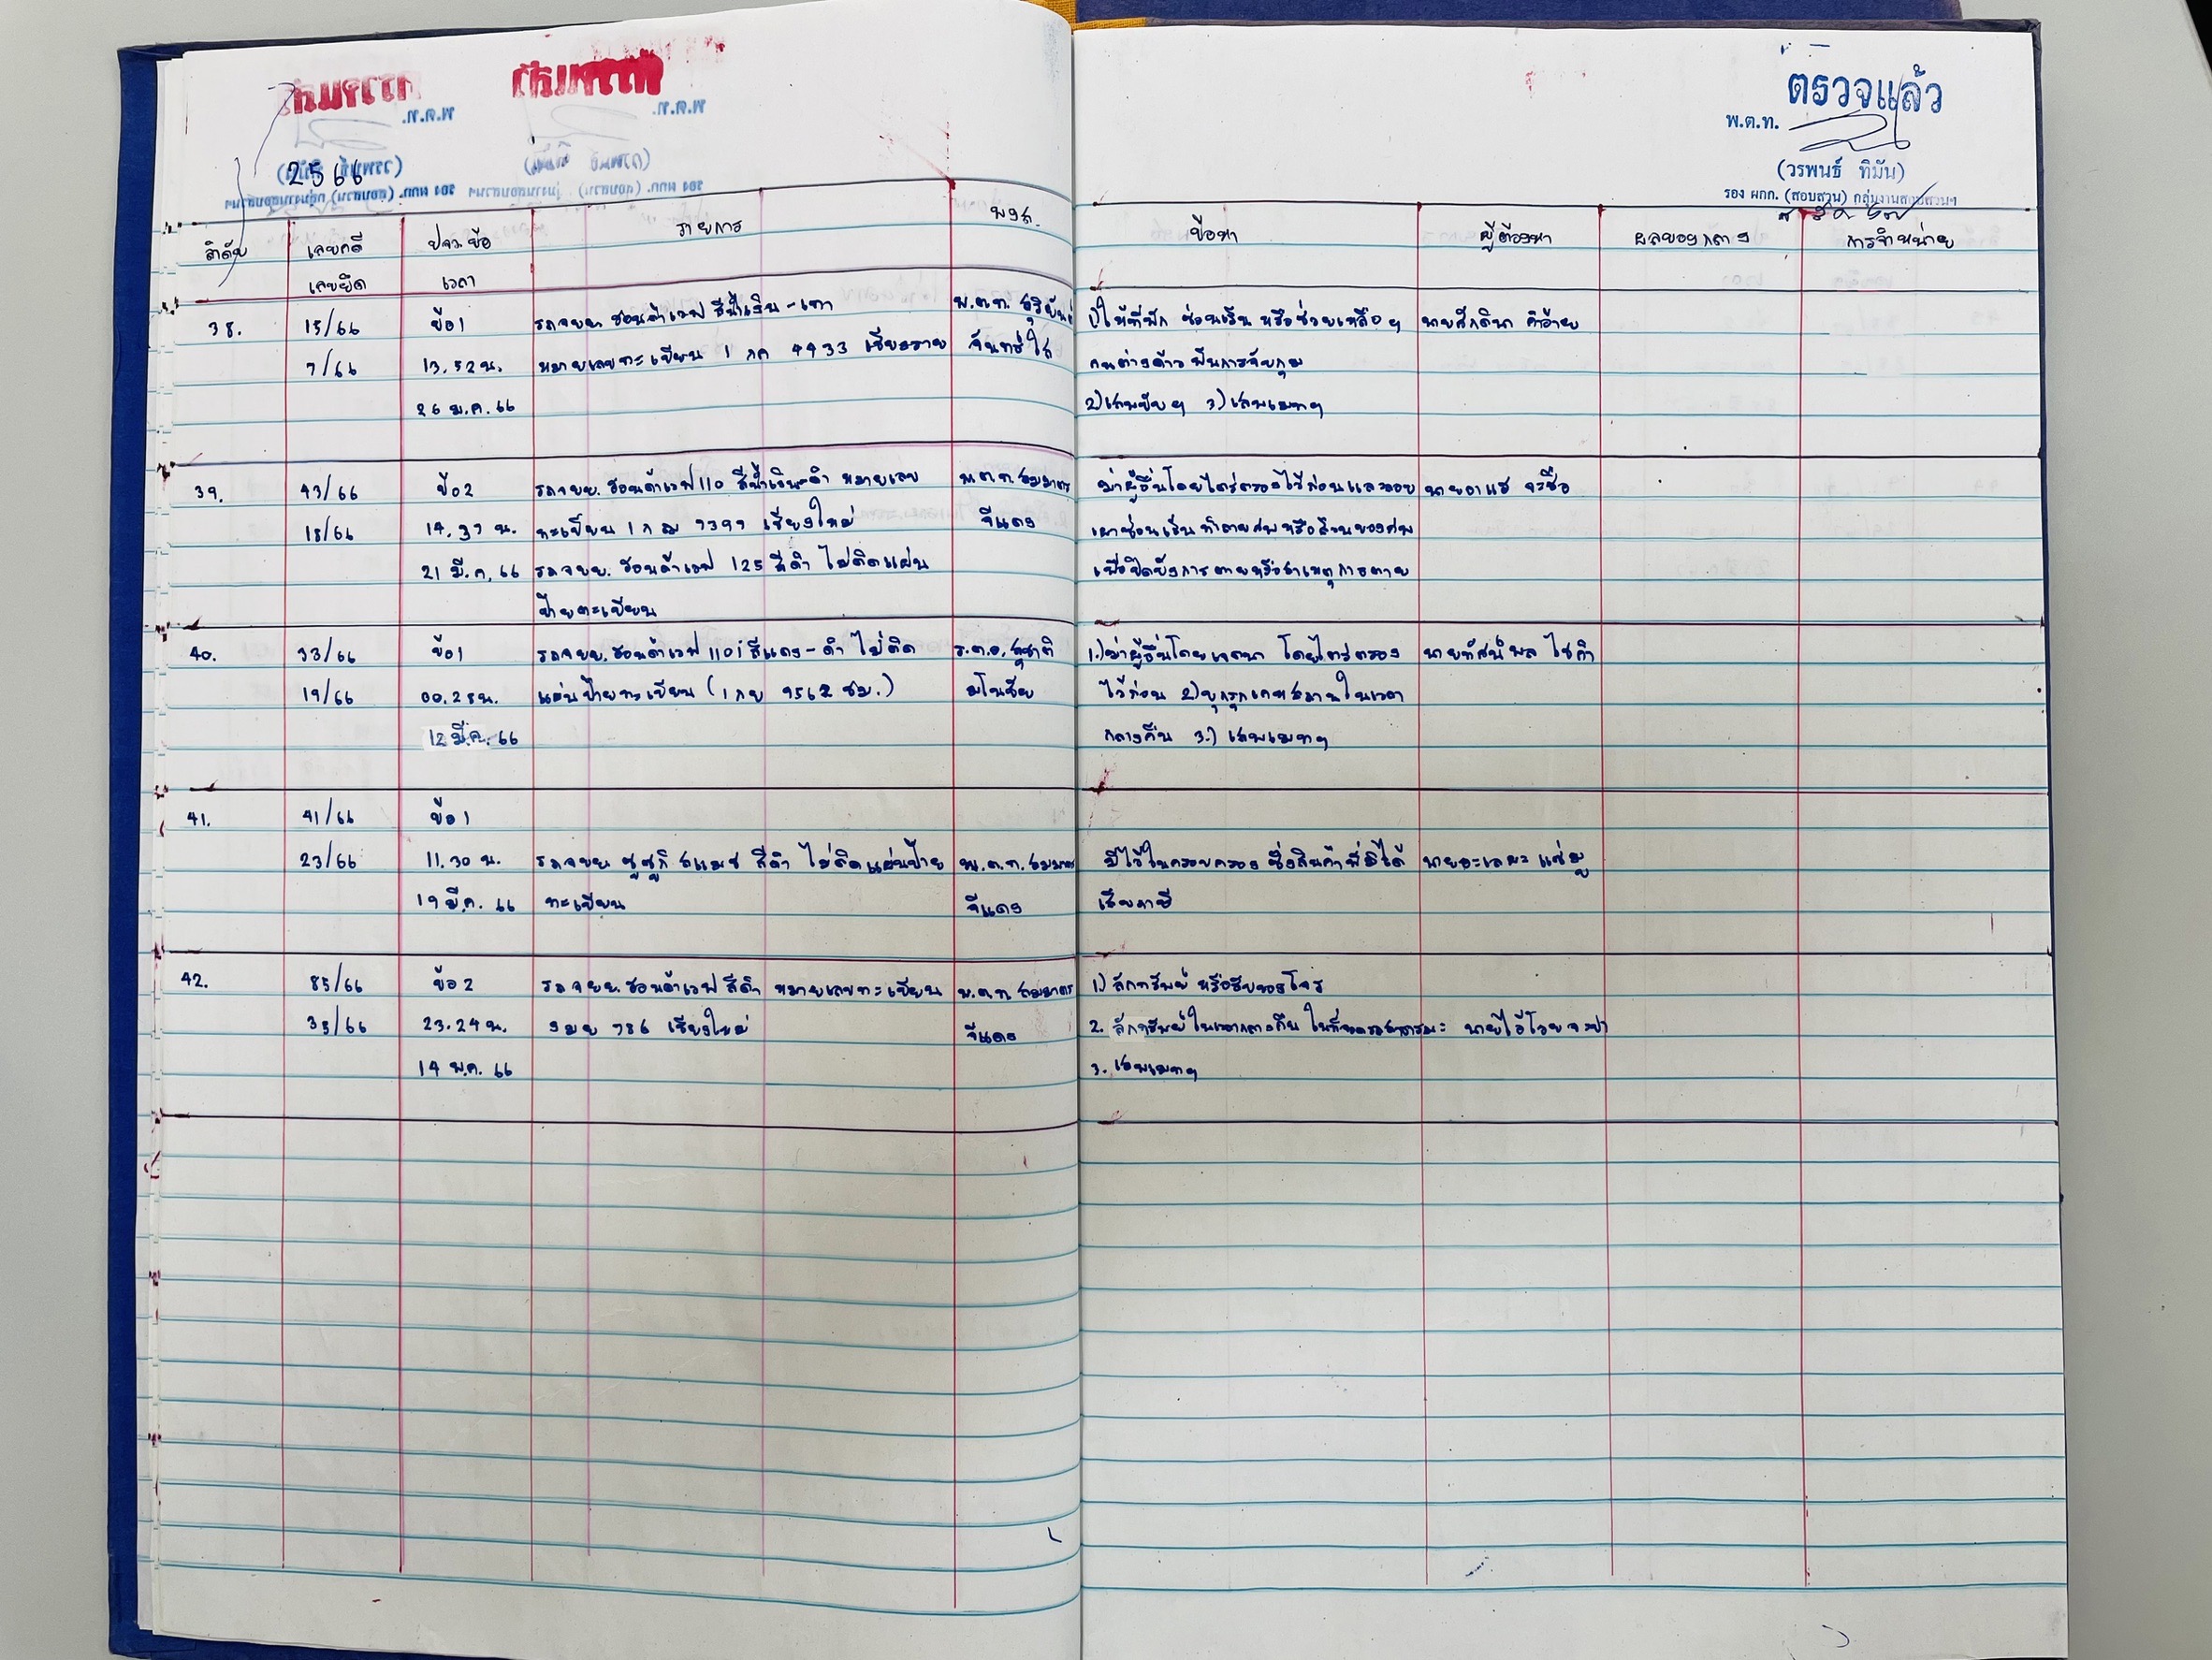 ตรวจแล้ว
พ.ต.ท.
(วรพนธ์ ทิมัน)
รอง ผกก. (สอบสวน) กลุ่มงานสอบสวนฯ
2566
ลำดับ เลขคดี ปจว.ข้อ รายการ พงส. ข้อหา ผู้ต้องหา ผลของกลาง การจำหน่าย
เลขยึด เวลา
38. 15/66 ข้อ 1 รถจยย. ฮอนด้าเวฟ สีน้ำเงิน-เทา พ.ต.ท. ให้ที่พัก ซ่อนเร้น หรือช่วยเหลือฯ นายศักดินา
7/66 13.52 น. หมายเลขทะเบียน 1 กค 4933 เชียงราย จันทร์ใส คนต่างด้าว พ้นการจับกุม
26 ม.ค. 66 2) 3) เสพเมทฯ
39. 43/66 ข้อ 2 รถจยย. ฮอนด้าเวฟ 110 สีน้ำเงิน-ดำ หมายเลข พ.ต.ท. ฆ่าผู้อื่นโดยไตร่ตรองไว้ก่อนและลอบ นายอาแซ จะซื่อ
18/66 14.37 น. ทะเบียน เชียงใหม่ จีแดง เผาซ่อนเร้น ทำลายศพหรือส่วนของศพ
21 มี.ค. 66 รถจยย. ฮอนด้าเวฟ 125 สีดำ ไม่ติดแผ่น เพื่อปิดบังการตายหรือสาเหตุการตาย
ป้ายทะเบียน
40. 33/66 ข้อ 1 รถจยย. ฮอนด้าเวฟ 110i สีแดง-ดำ ไม่ติด ร.ต.อ. สุชาติ 1.) ฆ่าผู้อื่นโดยเจตนา โดยไตร่ตรอง นายทัศน์พล ไชคำ
19/66 00.25 น. แผ่นป้ายทะเบียน (1 กย 9562 ชม.) มโนชัย ไว้ก่อน 2) บุกรุกเคหสถานในเวลา
12 มี.ค. 66 กลางคืน 3.) เสพเมทฯ
41. 41/66 ข้อ 1
23/66 11.30 น. รถจยย. ซูซูกิ สแมช สีดำ ไม่ติดแผ่นป้าย พ.ต.ท. มีไว้ในครอบครอง ซึ่งสินค้าที่มิได้
19 มี.ค. 66 ทะเบียน จีแดง เสียภาษี
42. 85/66 ข้อ 2 รถจยย. ฮอนด้าเวฟ สีดำ หมายเลขทะเบียน พ.ต.ท. 1) ลักทรัพย์ หรือรับของโจร
35/66 23.24 น. งมย 786 เชียงใหม่ จีแดง 2. ลักทรัพย์ในเวลากลางคืน
14 พ.ค. 66 3. เสพเมทฯ